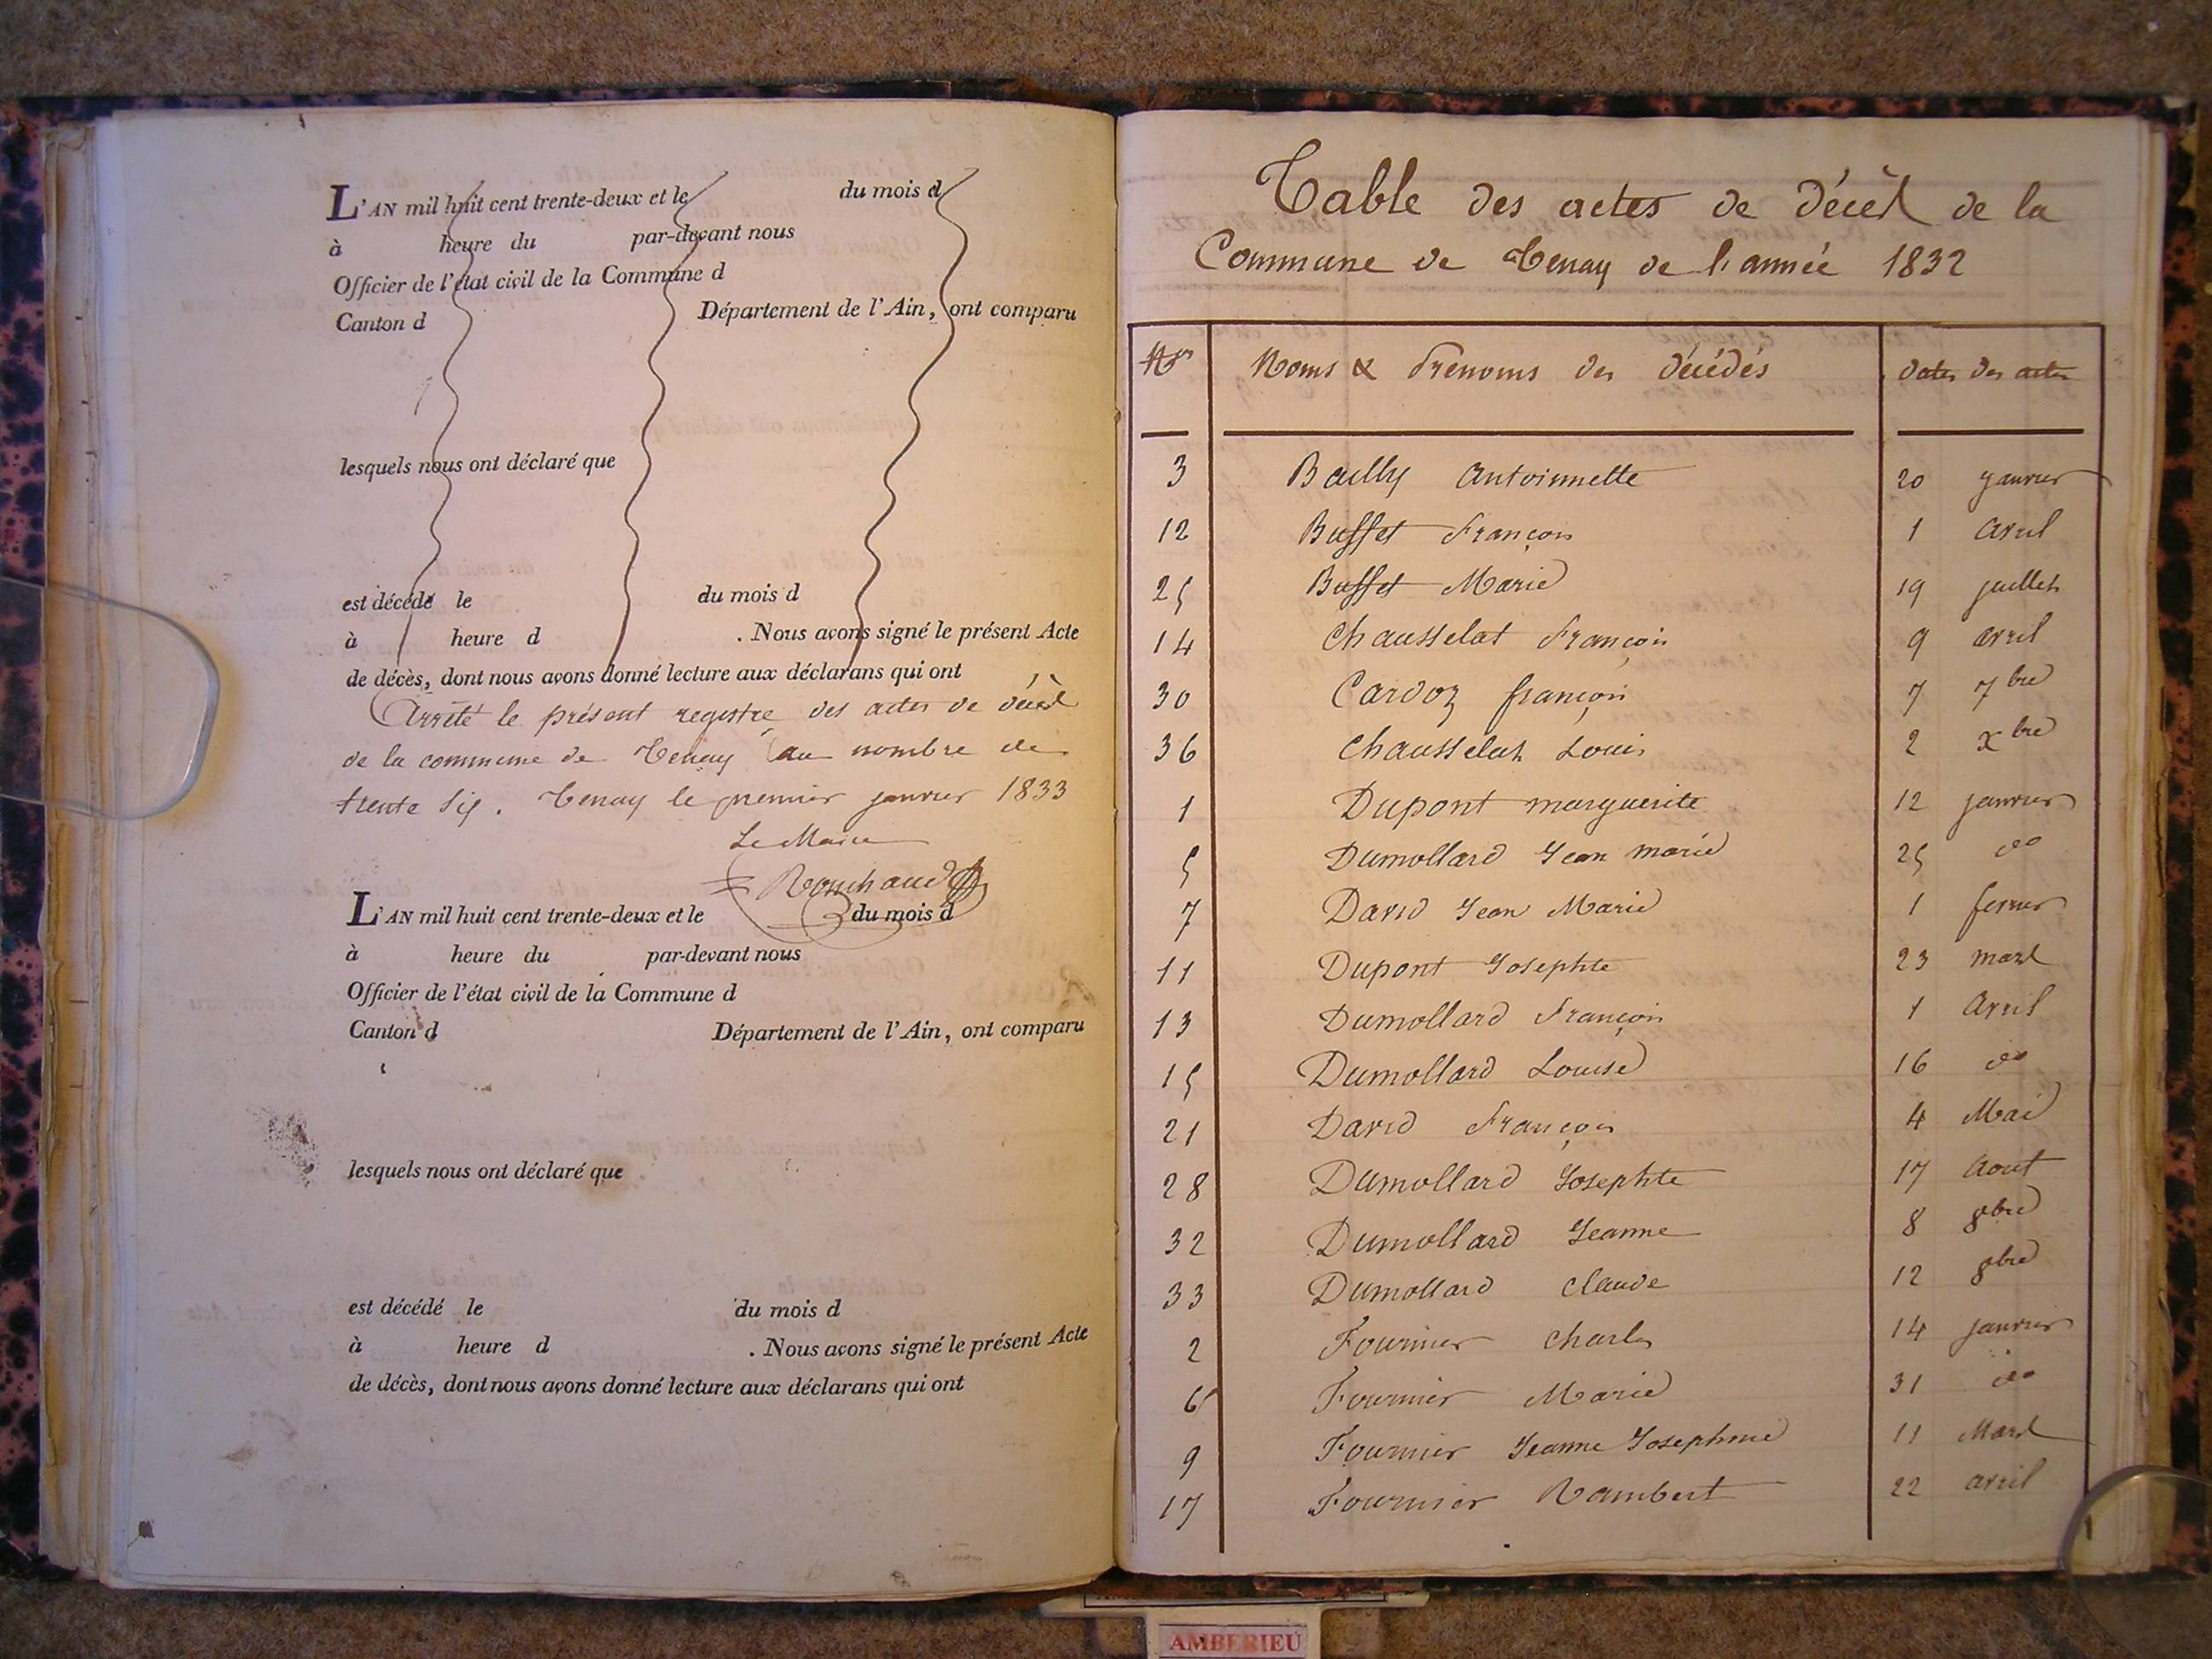 L'AN mil huit cent trente-deux et le du mois d
à heure du par-devant nous
Officier de l'état civil de la Commune d
Canton d Département de l'Ain, ont comparu
lesquels nous ont déclaré que
est décédé le du mois d
à heure d . Nous avons signé le présent Acte
de décès, dont nous avons donné lecture aux déclarans qui ont
Arrêté le présent registre des actes de décès
de la commune de Tenay au nombre de
trente six. Tenay le premier janvier 1833
Le Maire
Ronchaud
L'AN mil huit cent trente-deux et le du mois d
à heure du par-devant nous
Officier de l'état civil de la Commune d
Canton d Département de l'Ain, ont comparu
lesquels nous ont déclaré que
est décédé le du mois d
à heure d . Nous avons signé le présent Acte
de décès, dont nous avons donné lecture aux déclarans qui ont
Table des actes de décès de la
Commune de Tenay de l'année 1832
Nos Noms & Prenoms des décédés dates des actes
3 Bailly Antoinnette 20 janvier
12 Buffet François 1 avril
25 Buffet Marie 19 juillet
14 Chausselat François 9 avril
30 Cardoz françois 7 7bre
36 Chausselat Louis 2 xbre
1 Dupont marguerite 12 janvier
5 Dumollard Jean marie 25 do
7 David Jean Marie 1 fevrier
11 Dupont Josephte 23 mars
13 Dumollard François 1 Avril
15 Dumollard Louise 16 do
21 David François 4 Mai
28 Dumollard Josephte 17 Aout
32 Dumollard Jeanne 8 8bre
33 Dumollard Claude 12 8bre
2 Fournier Charles 14 janvier
6 Fournier Marie 31 do
9 Fournier Jeanne Josephine 11 Mars
17 Fournier Rambert 22 avril
AMBERIEU